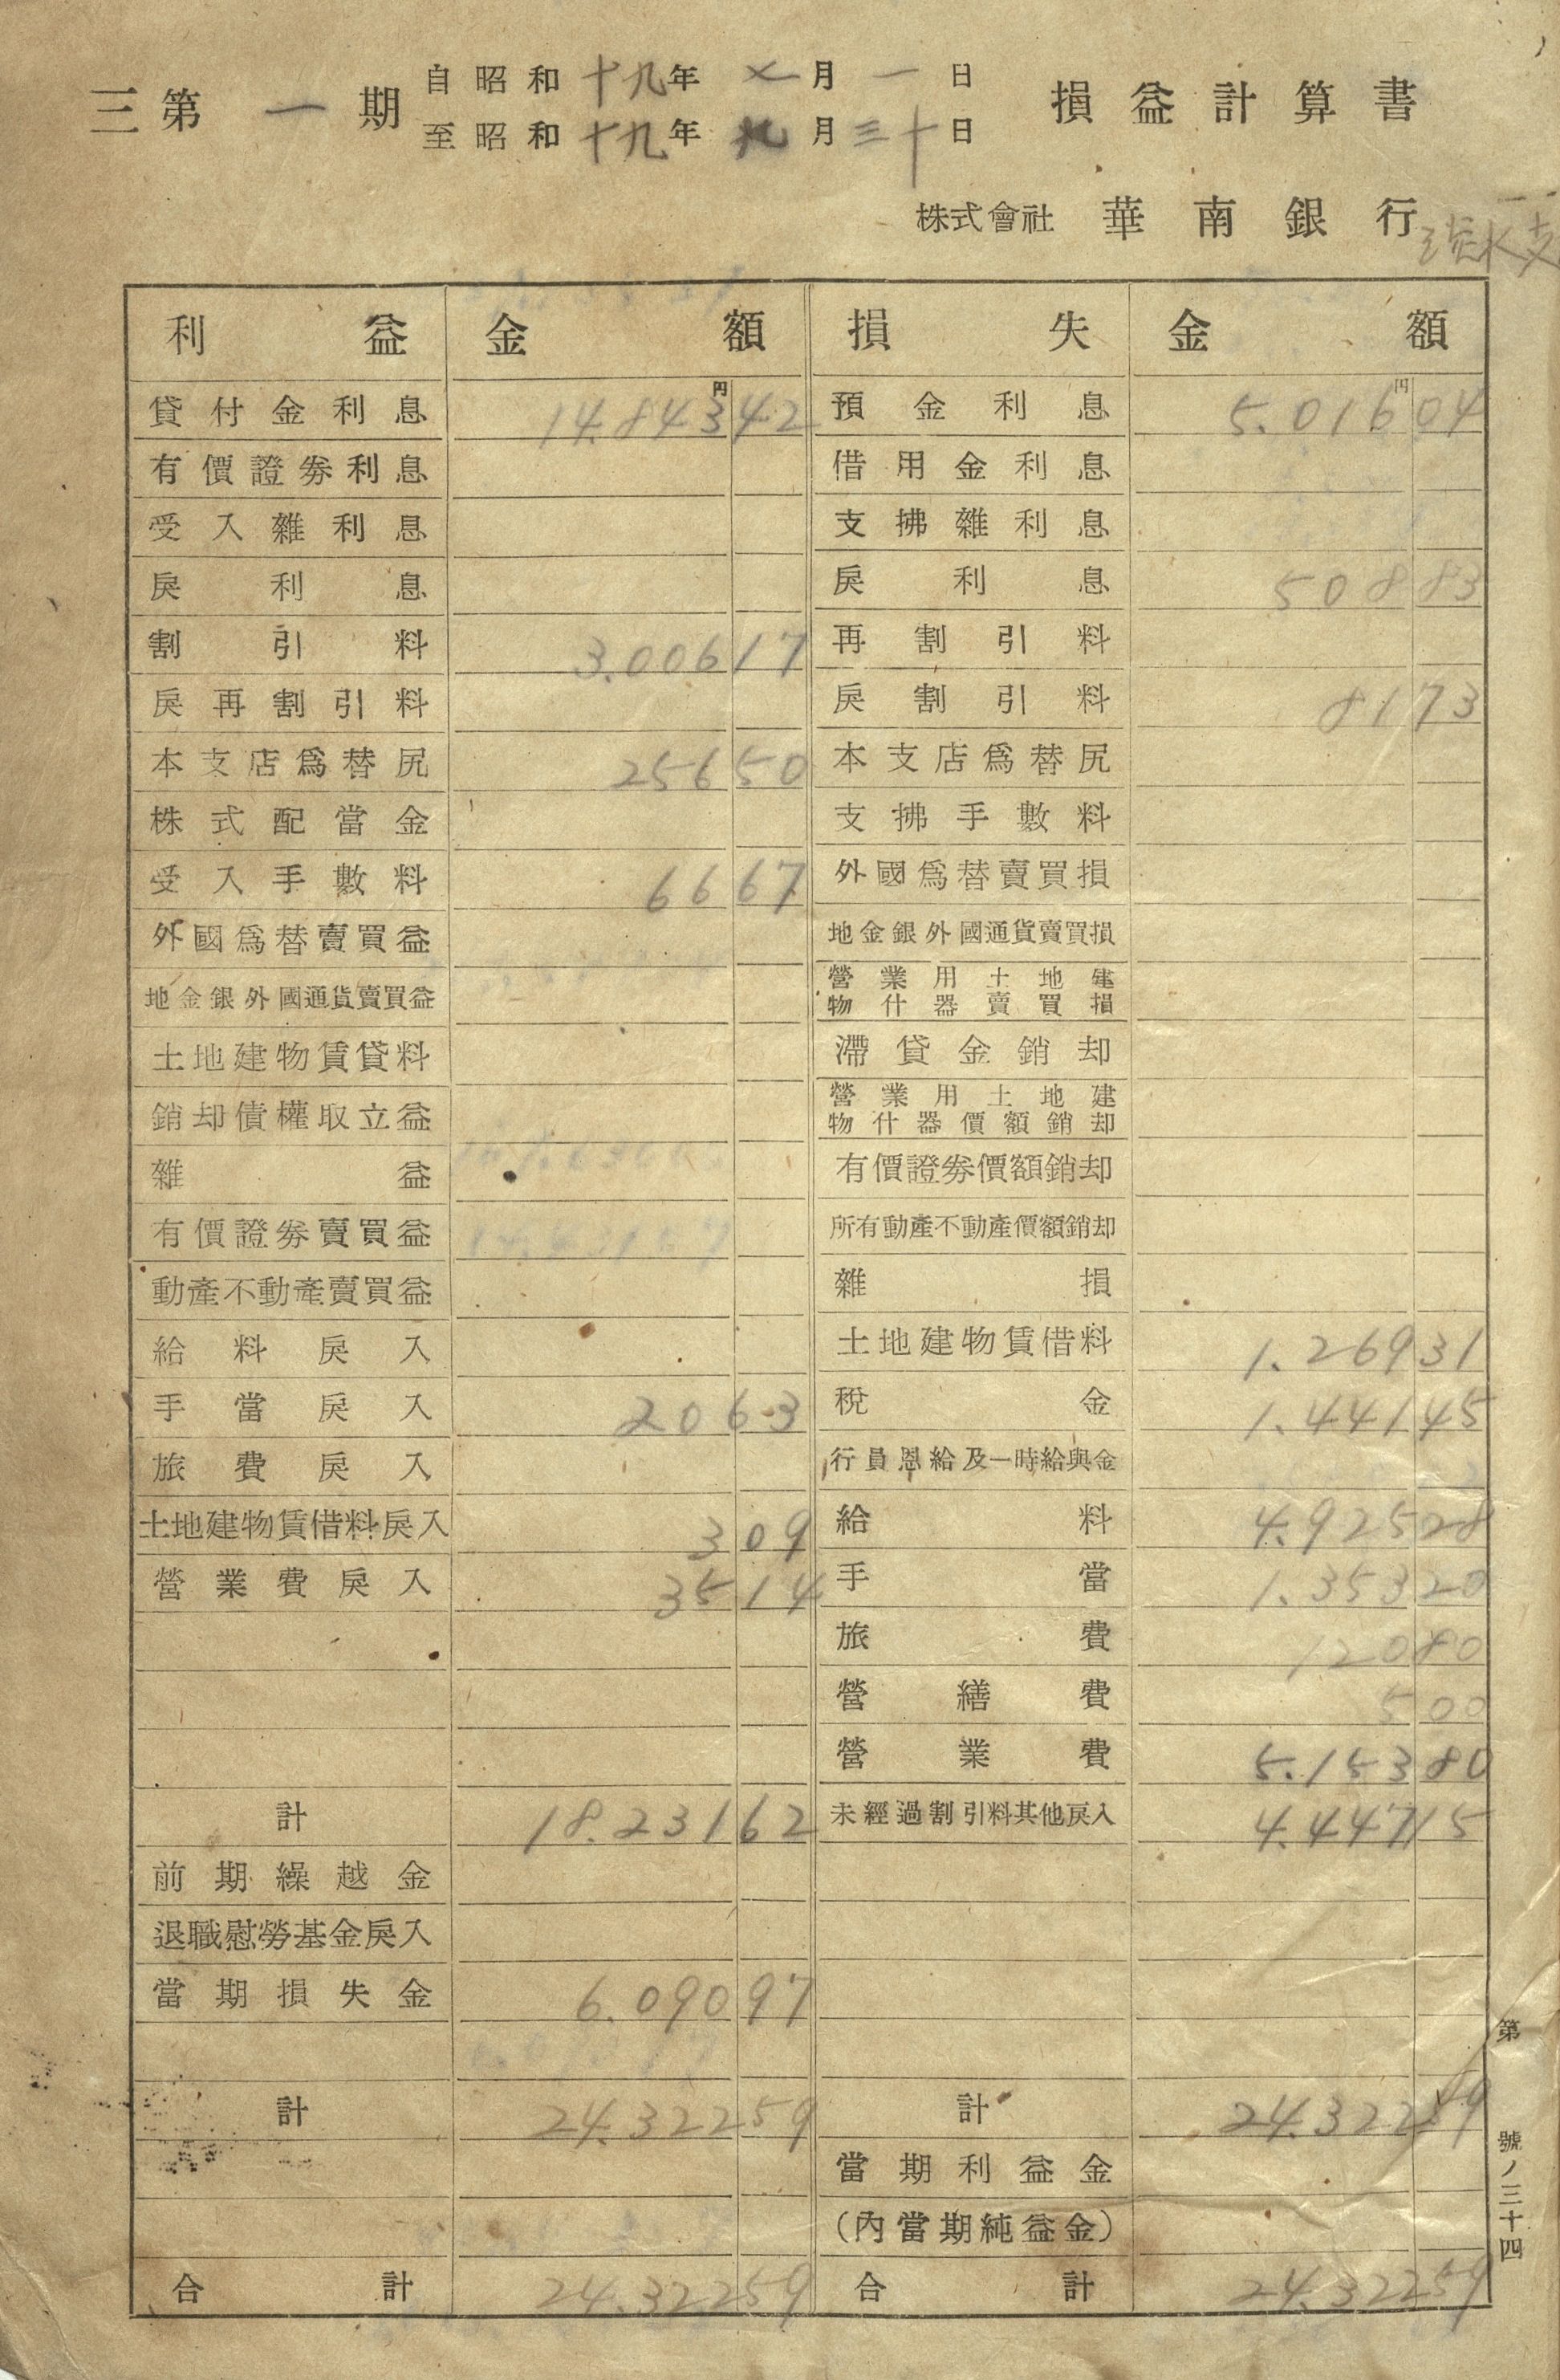 三第一期 自昭和十九年七月一日 損益計算書
至昭和十九年九月三十日
株式會社 華南銀行
利益 金額 損失 金額
円 円
貸付金利息 14.843 42 預金利息 5.016 04
有價證券利息 借用金利息
受入雜利息 支拂雜利息
戾利息 戾利息 508 83
割引料 3.006 17 再割引料
戾再割引料 戾割引料 81 73
本支店爲替尻 256 50 本支店爲替尻
株式配當金 支拂手數料
受入手數料 66 67 外國爲替賣買損
外國爲替賣買益 地金銀外國通貨賣買損
地金銀外國通貨賣買益 營業用土地建物什器賣買損
土地建物賃貸料 滯貸金銷却
銷却債權取立益 營業用土地建物什器價額銷却
雜益 有價證券價額銷却
有價證券賣買益 所有動產不動產價額銷却
動產不動產賣買益 雜損
給料戾入 土地建物賃借料 1.269 31
手當戾入 20 63 稅金 1.441 45
旅費戾入 行員恩給及一時給與金
土地建物賃借料戾入 3 09 給料 4.925 28
營業費戾入 35 14 手當 1.353 20
旅費 120 80
營繕費 5 00
營業費 5.153 80
計 18.231 62 未經過割引料其他戾入 4.447 15
前期繰越金
退職慰勞基金戾入
當期損失金 6.090 97
計 24.322 59 計 24.322 59
當期利益金
（內當期純益金）
合計 24.322 59 合計 24.322 59
第 號ノ三十四